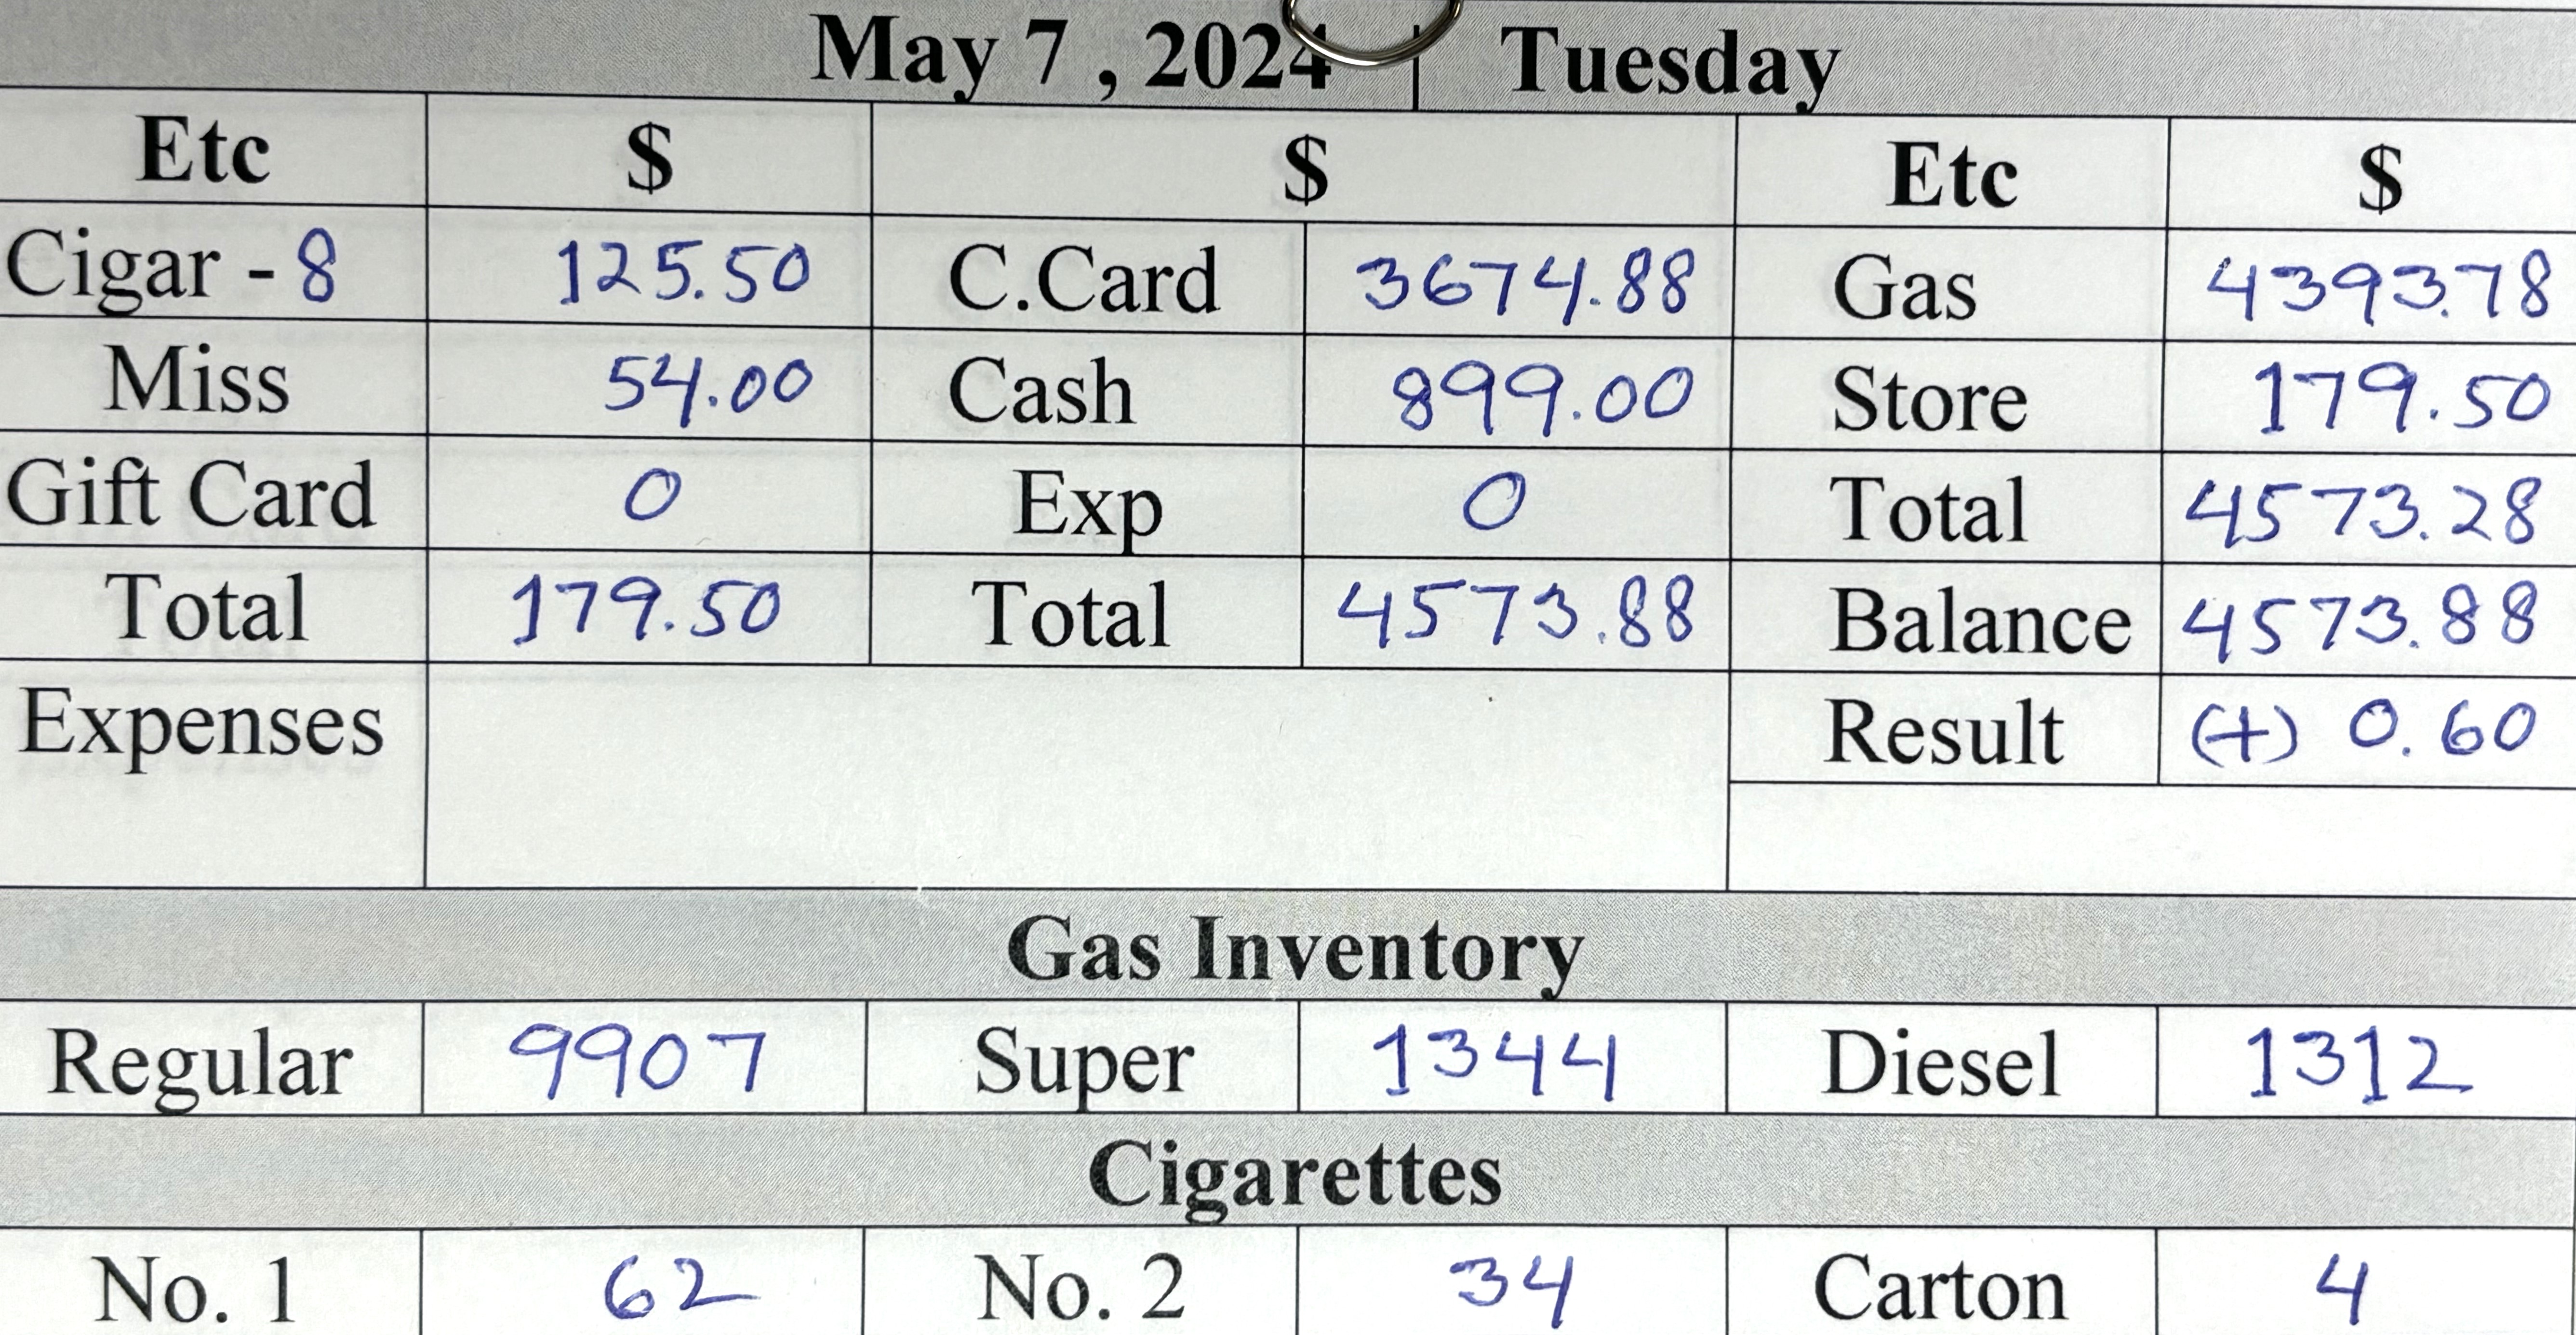 May 7 , 2024 | Tuesday
Etc $ $ Etc $
Cigar - 8 125.50 C.Card 3674.88 Gas 4393.78
Miss 54.00 Cash 899.00 Store 179.50
Gift Card 0 Exp 0 Total 4573.28
Total 179.50 Total 4573.88 Balance 4573.88
Expenses Result (+) 0.60
Gas Inventory
Regular 9907 Super 1344 Diesel 1312
Cigarettes
No. 1 62 No. 2 34 Carton 4